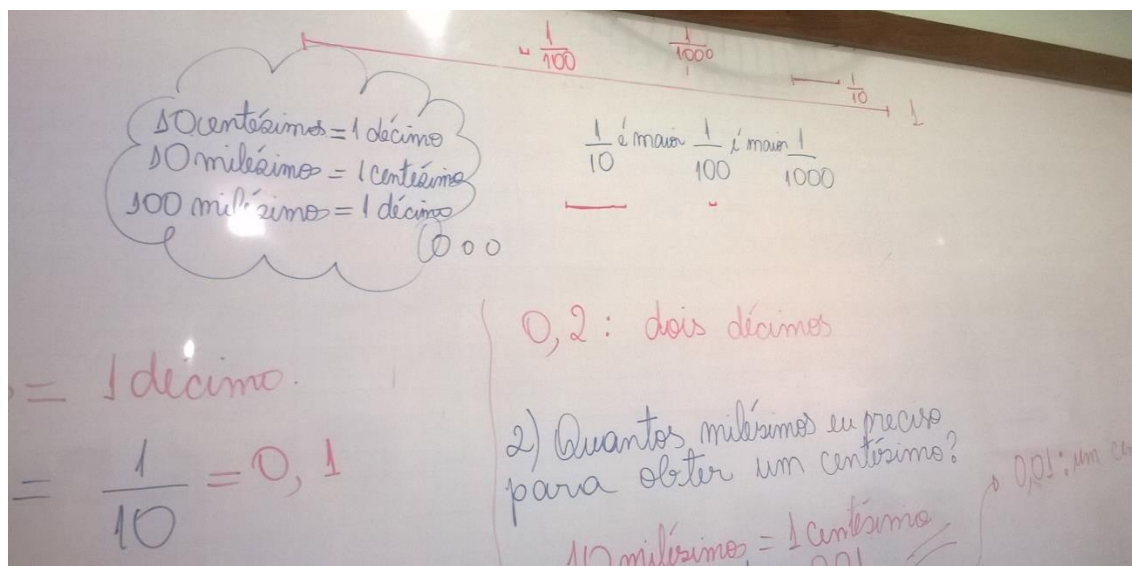 1/100 1/1000 1/10 1
10 centésimos = 1 décimo
10 milésimo = 1 centésimo
100 milésimo = 1 décimo
1/10 é maior 1/100 é maior 1/1000
0,2: dois décimos
= 1 décimo.
= 1/10 = 0,1
2) Quantos milésimos eu preciso
para obter um centésimo?
10 milésimos = 1 centésimo
0,01
0,01: um